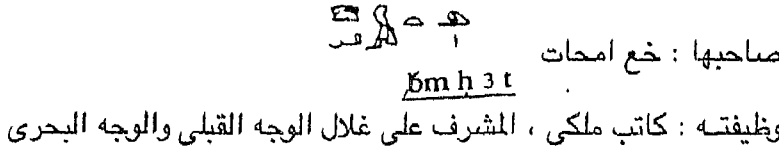 صاحبها : خع امحات
ḫm h 3 t
وظيفته : كاتب ملكى ، المشرف على غلال الوجه القبلى والوجه البحرى